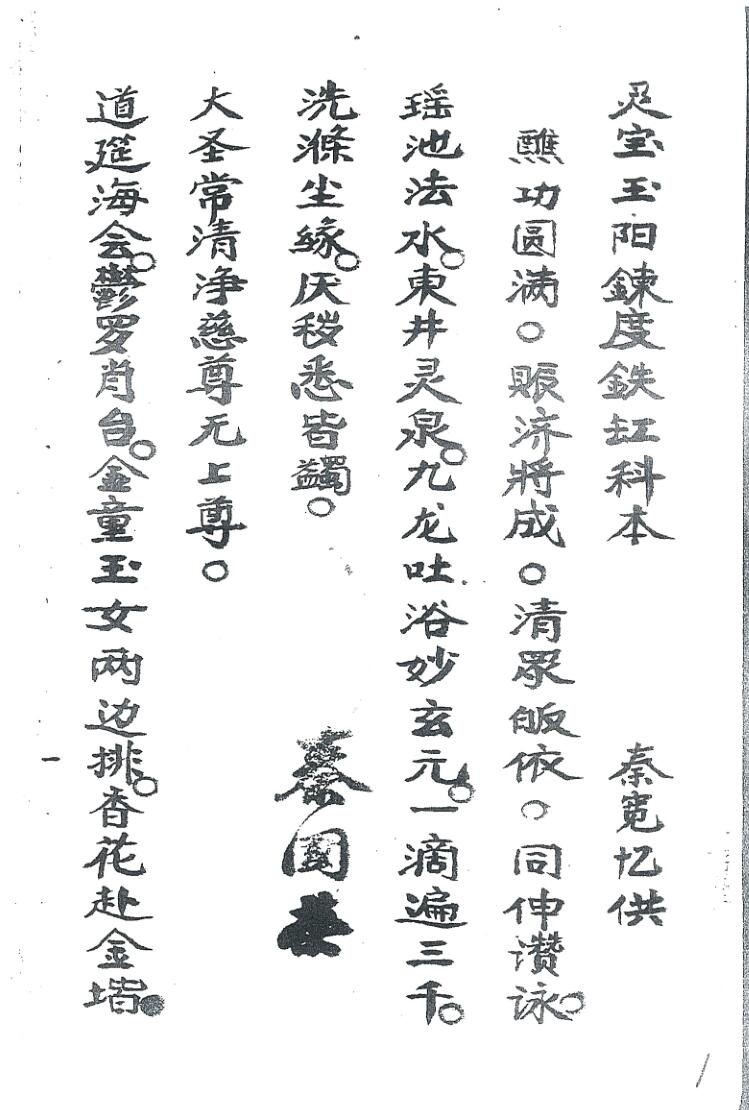 灵宝玉阳鍊度鉄缸科本 秦寛忆供
醮功圆满○赈济將成○清眾皈依○同伸讚咏○
瑶池法水○東井灵泉○九龙吐浴妙玄元○一滴遍三千○
洗滌尘缘○厌秽悉皆蠲○
秦国
大圣常清净慈尊无上尊○
道筵海会○鬱罗肖台○金童玉女两边排○香花赴金堦●
一
1